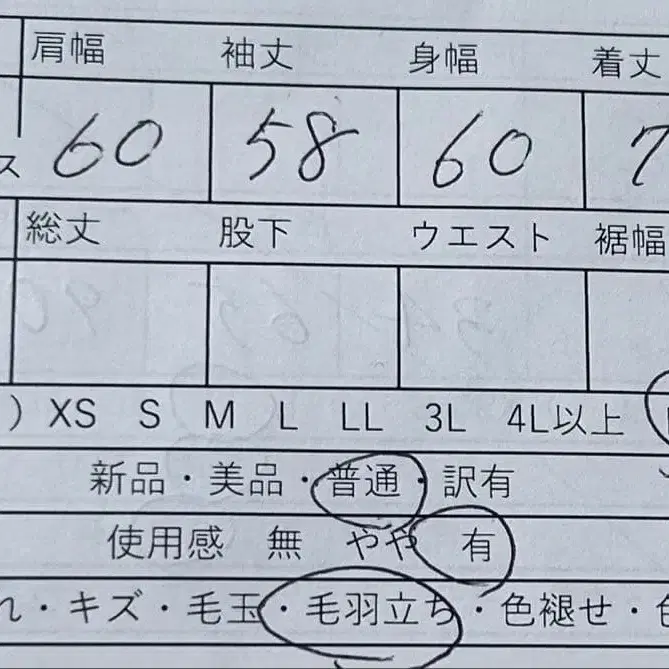 肩幅 袖丈 身幅 着丈
ス 60 58 60 7
総丈 股下 ウエスト 裾幅
) XS S M L LL 3L 4L以上
新品・美品・普通・訳有
使用感 無 やや 有
れ・キズ・毛玉・毛羽立ち・色褪せ・色